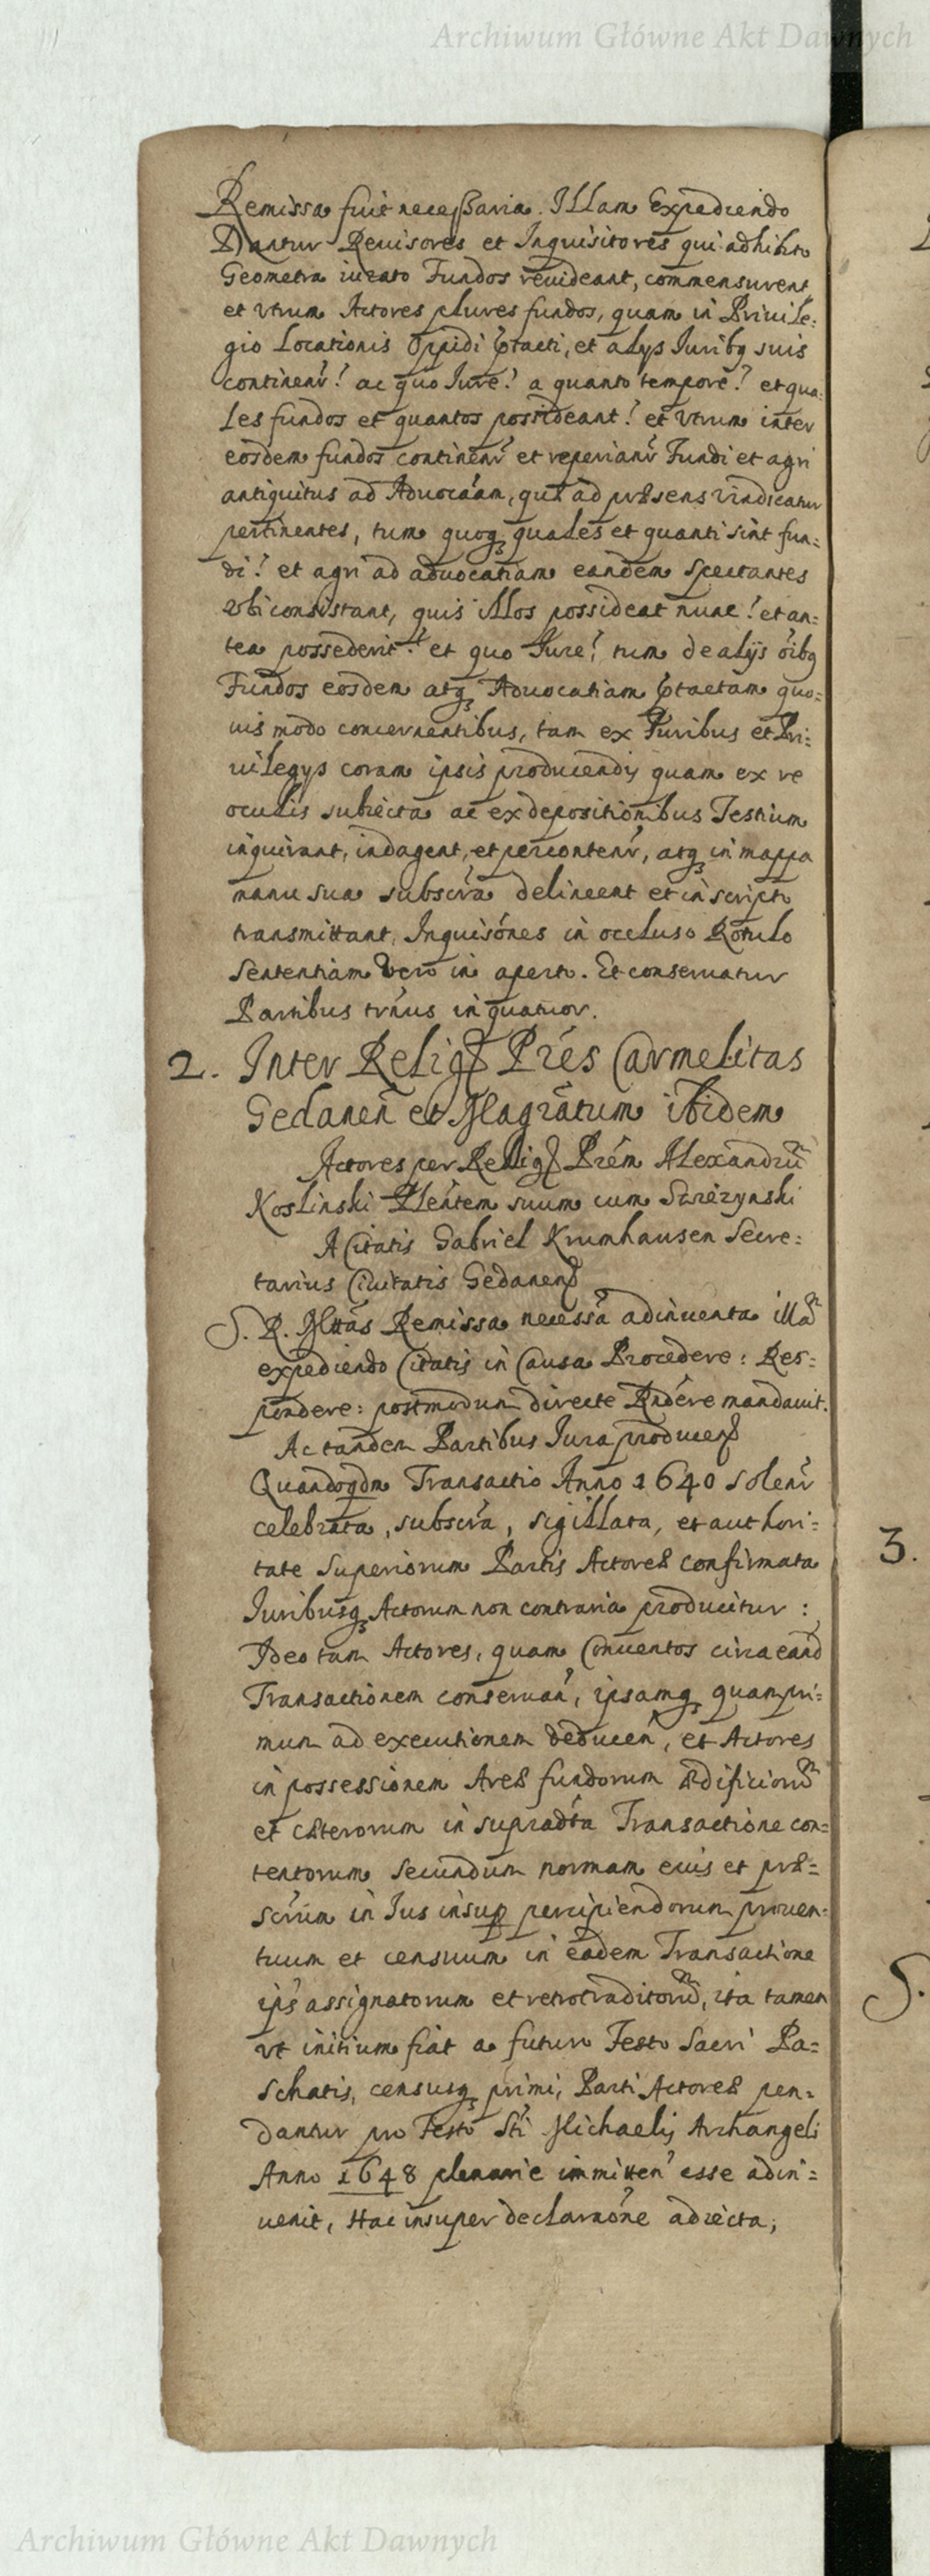 Archiwum Główne Akt Dawnych
Remissa fuit necessaria. Illam Expediendo
Dantur Reuisores et Inquisitores qui adhibito
Geometra iurato Fundos reuideant, commensurent
et vtrum Actores plures fundos, quam in Priuile:
gio Locationis Oppidi ptacti, et alys Juribq suis
continenr̃! ac quo Jure! a quanto tempore? et qua:
les fundos et quantos possideant! et vtrum inter
eosdem fundos continenr̃ et reperianr̃ Fundi et agri
antiquitus ad Aduocãam, quæ ad præsens vindicatur
pertinentes, tum quoq quales et quanti sint fun:
di! et agri ad aduocatiam eandem Spectantes
vbi consistant, quis illos possideat nunc! et an:
tea possederit! et quo Jure! tum de alijs oĩbq
Fundos eosdem atq Aduocatiam ptactam quo:
uis modo concernentibus, tam ex Juribus et Pri:
uilegys coram ipsis producendis quam ex re
oculis subiecta ac ex depositionibus Testium
inquirant, indagent, et percontenr̃, atq in mappa
manu sua subscrã delineent et in scripto
transmittant, Inquisões in occluso Rotulo
Sententiam Vero in aperto. Et conseruatur
Partibus trñus in quatuor.
2. Inter Relig Pres Carmelitas
Gedanen̄ et Magrãtum ibidem
Actores per Relig Prem Alexandrũ
Koslinski Plentem suum cum Strezynski
A Citatis Gabriel Krumhausen Secre:
tarius Ciuitatis Gedanen
S. R. Mttas Remissa necessã adinuenta illã
expediendo Citatis in Causa Procedere: Res:
pondere: postmodum directe Rndere mandauit.
Ac tandem Partibus Jura producen
Quandoqdm Transactio Anno 1640 solenr̃
celebrata, subscrã, sigillata, et authori:
tate Superiorum Partis Actoreæ confirmata
Juribusq Actorum non contraria producitur:
Ideo tam Actores, quam Conuentos circa eand
Transactionem conseruan̄, ipsamq quampri:
mum ad executionem deducen̄, et Actores
in possessionem Areæ fundorum ædificiorũ
et cæterorum in supradta Transactione con:
tentorum secundum normam eius et præ:
scrum in Jus insup percipiendorum prouen:
tuum et censuum in eadem Transactione
ips̃ assignatorum et retrotraditorũ, ita tamen
vt initium fiat a futuro Festo Sacri Pa:
schatis, censusq primi, Parti Actoreæ pen:
dantur pro Festo Sti Michaelis Archangeli
Anno 1648 plenarie immitten̄ esse adin:
uenit, Hac insuper declaraõne adiecta,
3.
S.
Archiwum Główne Akt Dawnych